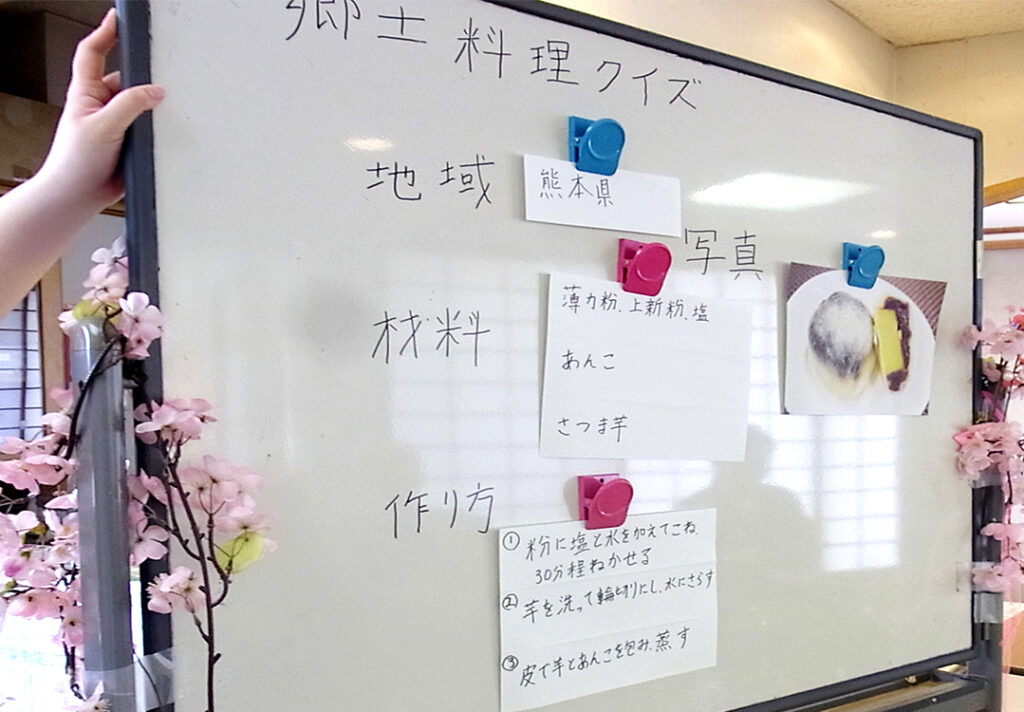 郷土料理クイズ
地域
熊本県
写真
材料
薄力粉、上新粉、塩
あんこ
さつま芋
作り方
① 粉に塩と水を加えてこね、
30分程ねかせる
② 芋を洗って輪切りにし、水にさらす
③ 皮で芋とあんこを包み、蒸す